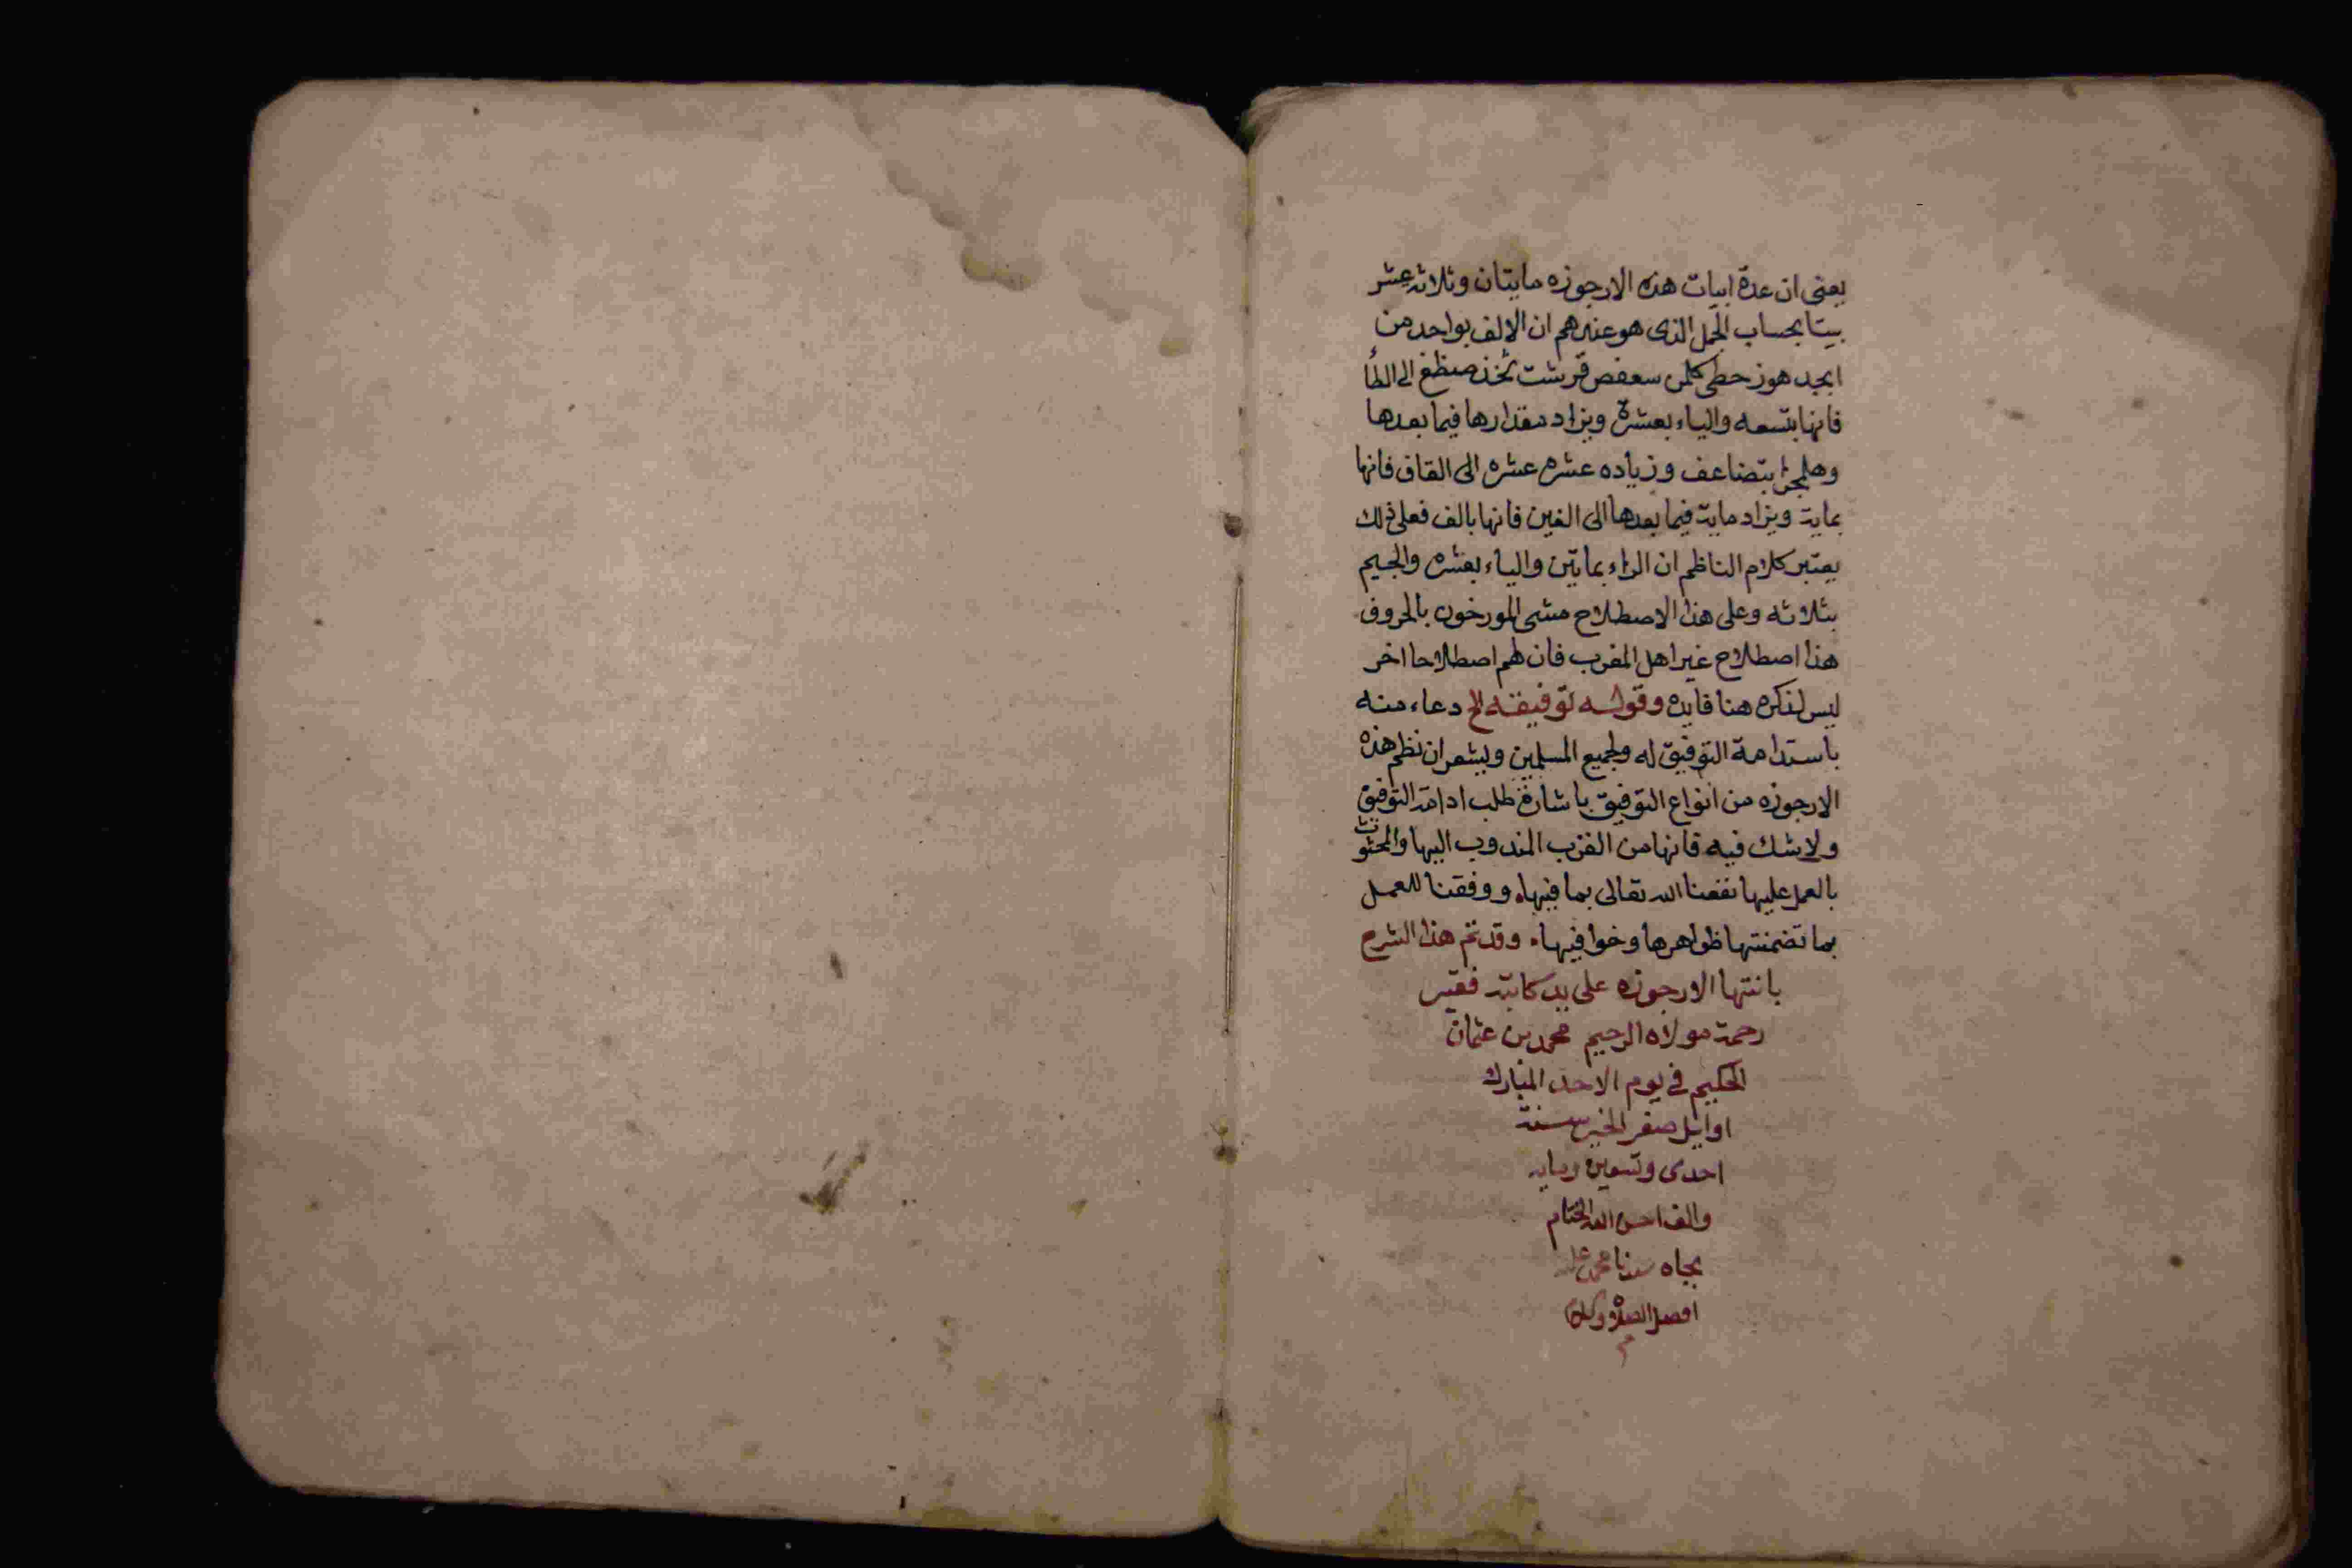 يعنى ان عدة ابيات هذه الارجوزه مايتان وثلاثه عشر
بيتا بحساب الجمل الذى هو عندهم ان الالف بواحد من
ابجد هوز حطى كلمن سعفص قرشت ثخذ ضظغ الى الطأ
فانها بتسعه والياء بعشرة ويزاد مقدارها فيما بعدها
وهلم جرا بتضاعف وزياده عشره عشره الى القاف فانها
بماية ويزاد ماية فيما بعدها الى الغين فانها بالف فعلى ذلك
يعتبر كلام الناظم ان الراء بمايتين والياء بعشره والجيم
بثلاثه وعلى هذا الاصطلاح مشى المورخون بالحروف
هذا اصطلاح غير اهل المغرب فان لهم اصطلاحا اخر
ليس لذكره هنا فايده وقوله توفيقه الخ دعاء منه
باستدامة التوفيق له ولجميع المسلمين ويشعر ان نظم هذه
الارجوزه من انواع التوفيق باشارة طلب ادامة التوفيق
ولا شك فيه فانها من القرب المندوب اليها والمحثوث
بالعمل عليها نفعنا الله تعالى بما فيها ووفقنا للعمل
بما تضمنتها ظواهرها وخوافيها وقد تم هذا الشرح
بانتها الارجوزه على يد كاتبه فقير
رحمة مولاه الرحيم محمد بن عثمان
الحكيم فى يوم الاحد المبارك
اوايل صفر الخير سنة
احدى وتسعين ومايه
والف احسن الله الختام
بجاه سيدنا محمد عليه
افضل الصلاة